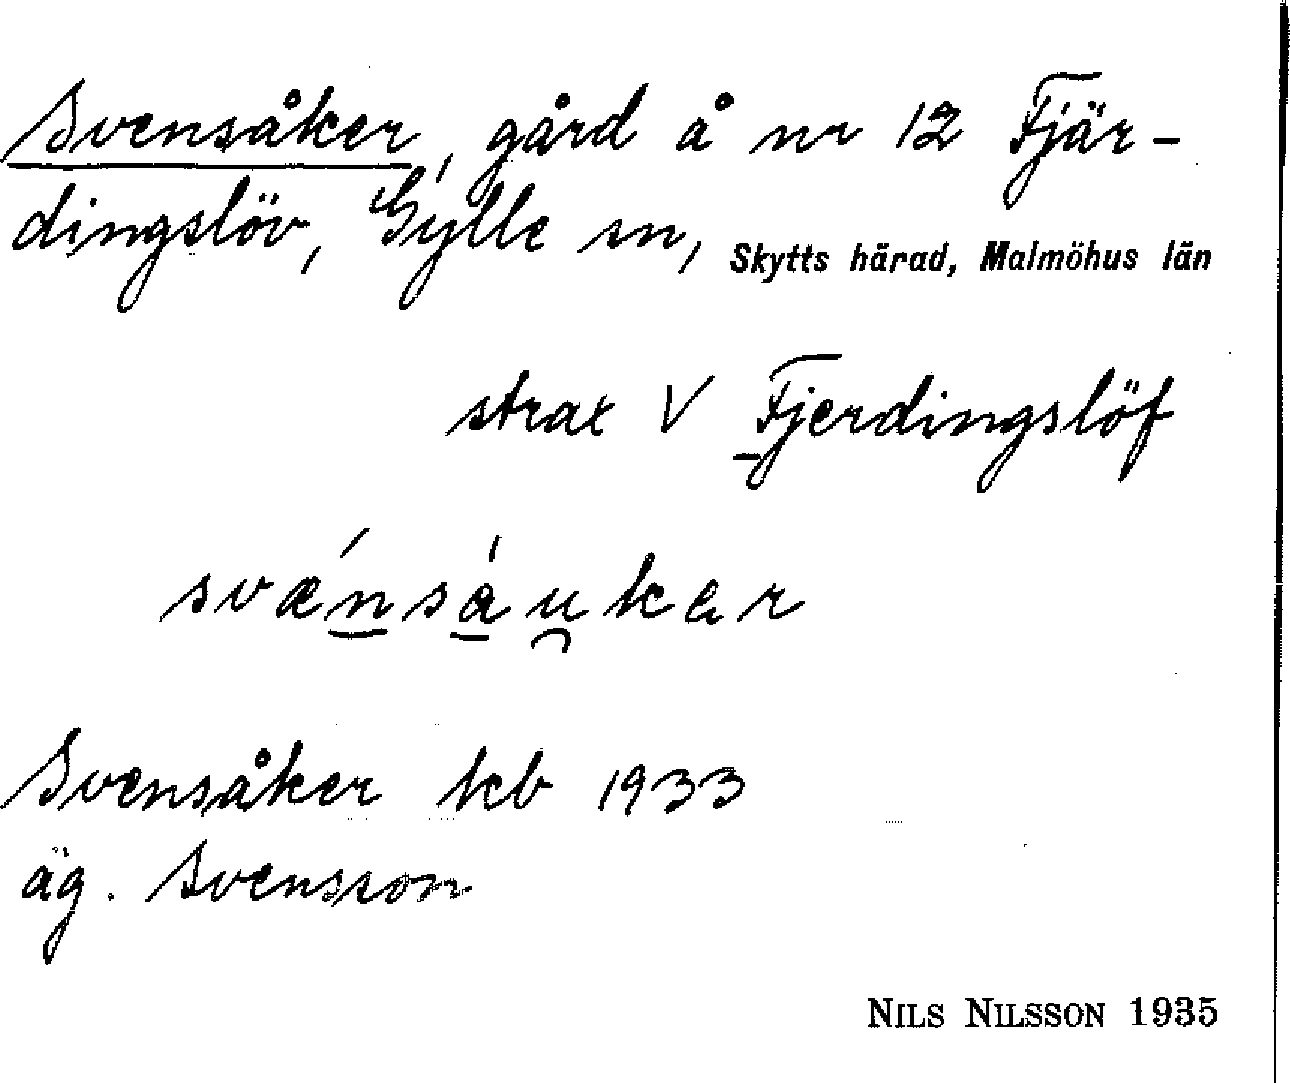 Svensåker, gård å nr 12 Fjär-
dingslöv, Gylle sn, Skytts härad, Malmöhus län
strax V Fjerdingslöf
svǽnsáu̯kər
Svensåker kb 1933
äg. Svensson
NILS NILSSON 1935